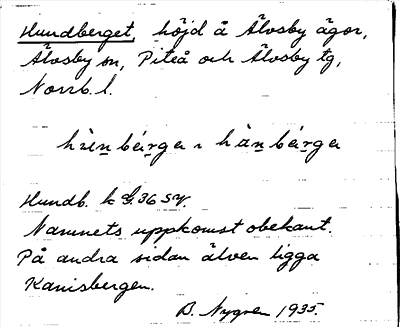 Hundberget, höjd å Älvsby ägor,
Älvsby sn, Piteå och Älvsby tg,
Norrb. l.
Hundb. k 36 SV.
Namnets uppkomst obekant.
På andra sidan älven ligga
Kanisbergen.
B. Nygren 1935.